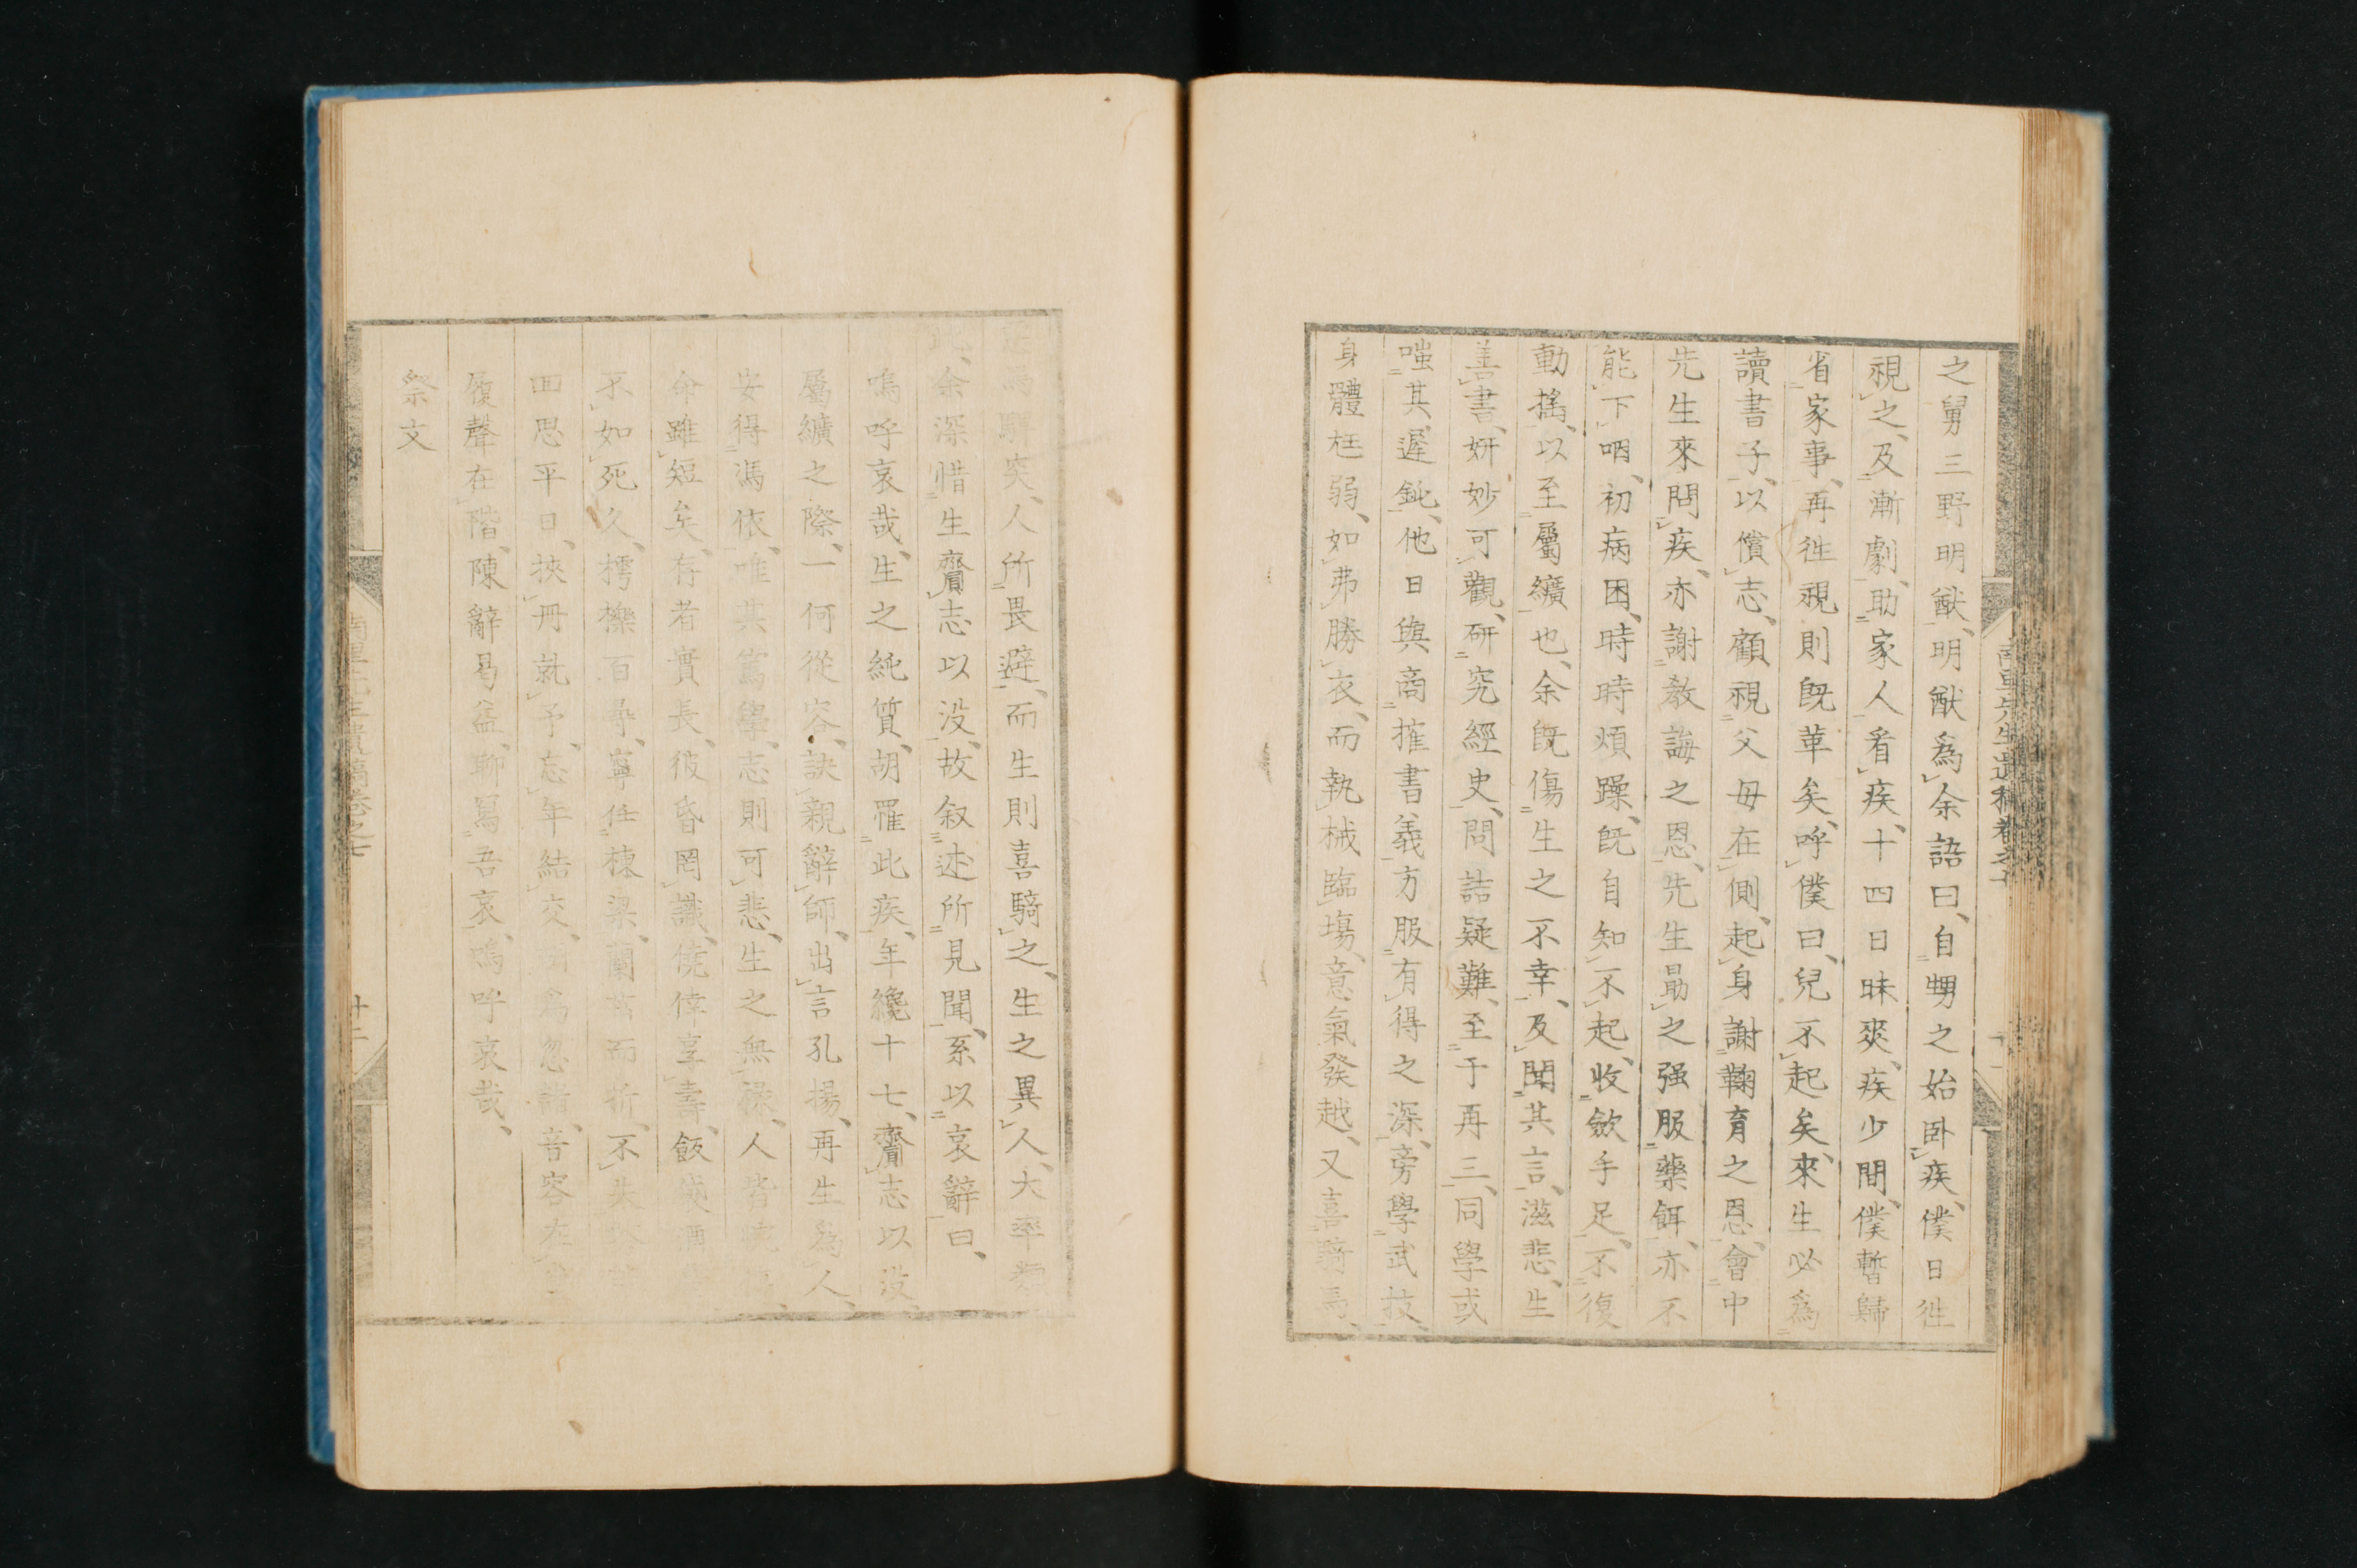 之舅三野明猷、明猷爲余語曰、自甥之始臥疾、僕日徃
視之、及漸劇、助家人看疾、十四日昧爽、疾少間、僕暫歸
省家事、再徃視則既革矣、呼僕曰、兒不起矣、來生必爲
讀書子、以償志、顧視父母在側、起身謝鞠育之恩、會中
先生來問疾、亦謝教誨之恩、先生勗之强服藥餌、亦不
能下咽、初病困、時時煩躁、既自知不起、收斂手足、不復
動搖、以至屬纊也、余既傷生之不幸、及聞其言、滋悲、生
善書、妍妙可觀、研究經史、問詰疑難、至于再三、同學或
嗤其遲鈍、他日與商搉書義、方服有得之深、旁學武技、
身體尪弱、如弗勝衣、而執械臨場、意氣發越、又喜騎馬、
馬駻突、人所畏避、而生則喜騎之、生之異人、大率類
此、余深惜生齎志以没、故叙述所見聞、系以哀辭曰、
嗚呼哀哉、生之純質、胡罹此疾、年纔十七、齎志以没
屬纊之際、一何從容、訣親辭師、出言孔揚、再生爲人、
安得馮依、唯其篤學、志則可悲、生之無祿、人皆
命雖短矣、存者實長、彼昏罔識、僥倖享壽、飯
不如死久、樗櫟百尋、寧任棟梁、蘭而折、不失
回思平日、挾冊就予、忘年結交、爲忽諸、音容在
履聲在階、陳辭曷益、聊寫吾哀、嗚呼哀哉、
祭文
南里先生遺稿卷之七